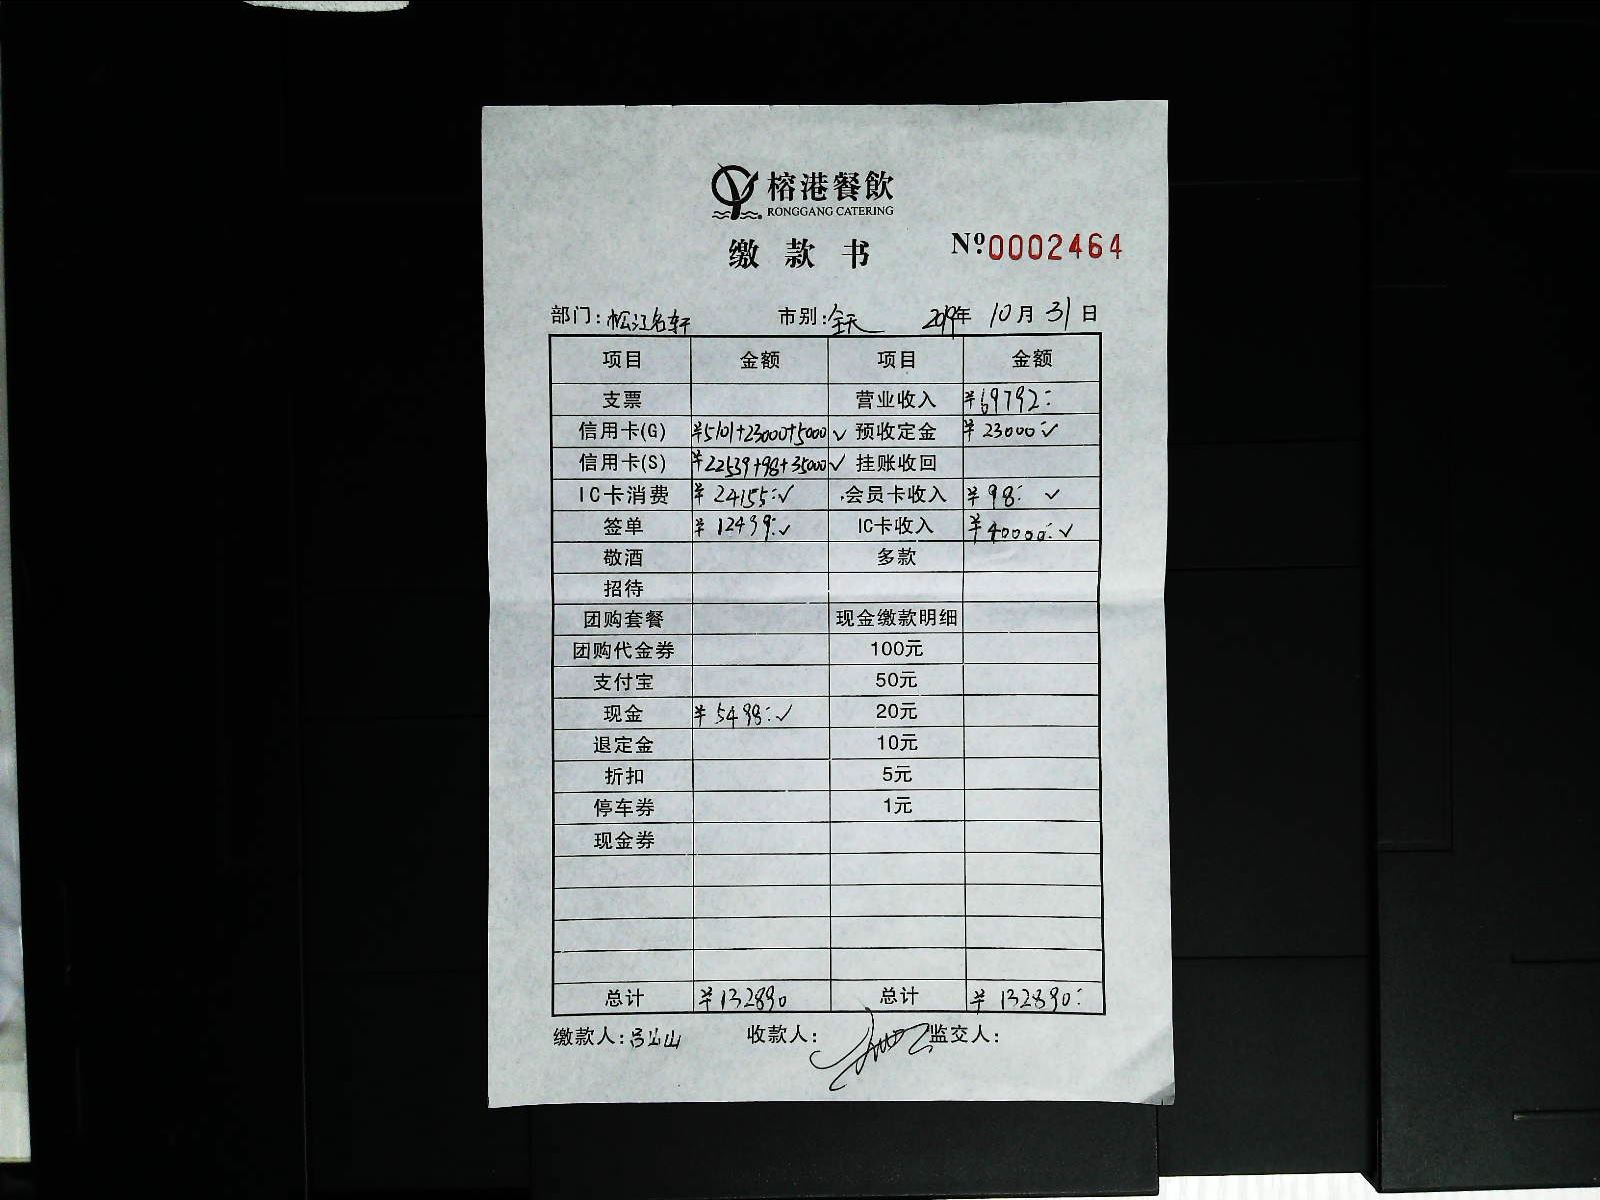 榕港餐飲
RONGGANG CATERING
缴款书 Nº0002464
部门:松江名轩 市别:全天 2019年 10月 31日
项目 金额 项目 金额
支票 营业收入 ¥69792:
信用卡(G) ¥5101+23000+5000 ✓ 预收定金 ¥23000:✓
信用卡(S) ¥22539+98+35000 ✓ 挂账收回
IC卡消费 ¥24155:✓ 会员卡收入 ¥98: ✓
签单 ¥12499:✓ IC卡收入 ¥40000:✓
敬酒 多款
招待
团购套餐 现金缴款明细
团购代金券 100元
支付宝 50元
现金 ¥5498:✓ 20元
退定金 10元
折扣 5元
停车券 1元
现金券
总计 ¥132890 总计 ¥132890:
缴款人:吕山山 收款人: 监交人: